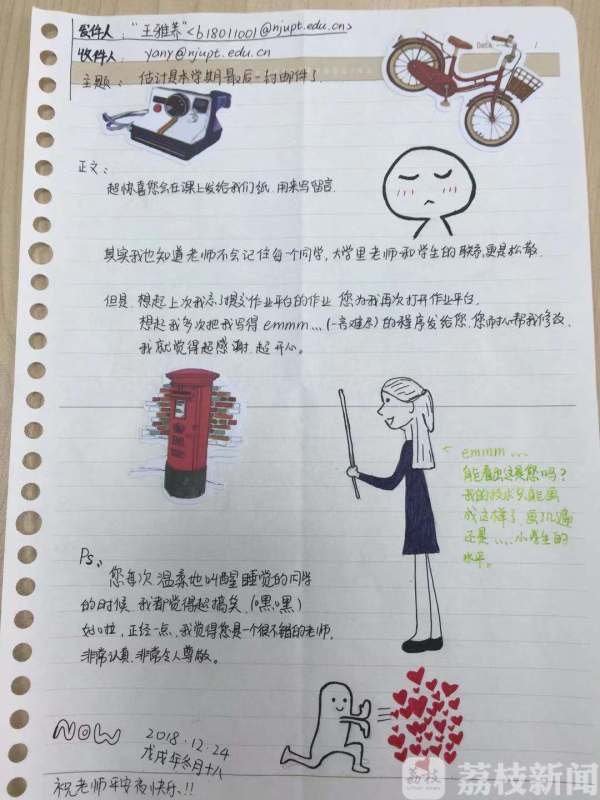 发件人："王雅荞"<b18011001@njupt.edu.cn>
收件人：yany@njupt.edu.cn
Date
主题：估计是本学期最后一封邮件了
正文：
超惊喜您会在课上发给我们纸，用来写留言.
其实我也知道老师不会记住每个同学，大学里老师和学生的联系更是松散.
但是，想起上次我忘了提交作业平台的作业 您为我再次打开作业平台.
想起我多次把我写得emmm...(一言难尽)的程序发给您,您耐心帮我修改.
我就觉得超感谢,超开心。
emmm...
能看出这是您吗?
我的技术只能画
成这样了,画几遍
还是....小学生的
水平。
Ps。
您每次温柔地叫醒睡觉的同学
的时候,我都觉得超搞笑.(嘿嘿)
好啦,正经一点,我觉得您是一个很不错的老师.
非常认真,非常令人尊敬。
NOW
2018.12.24
戊戌年冬月十八
祝老师平安夜快乐!!
荔枝
荔枝新闻